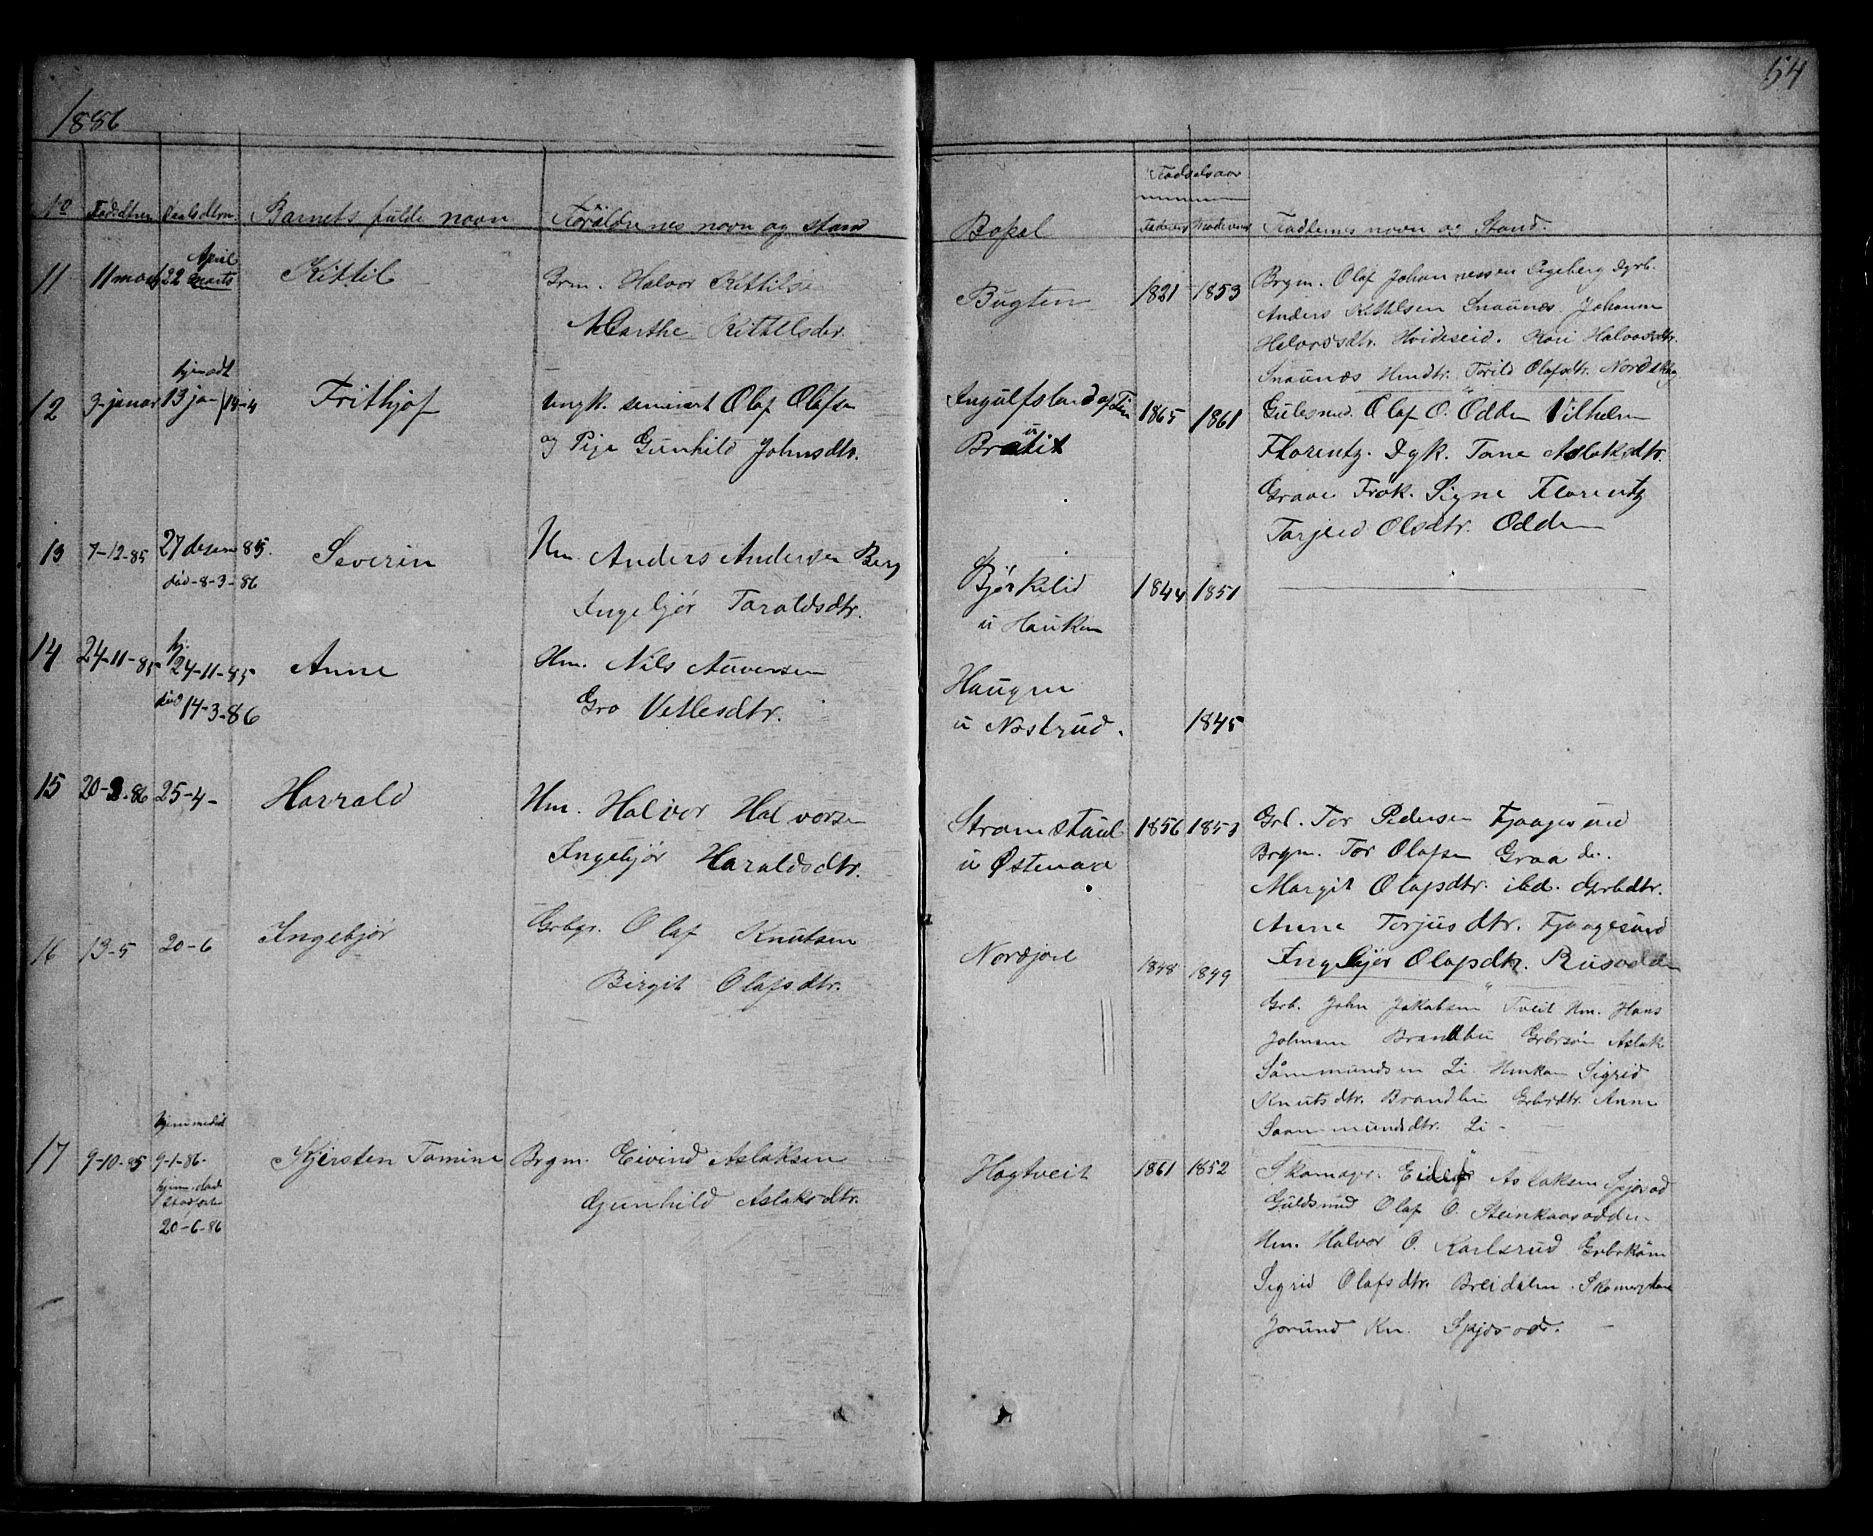 1886
54
No Föd.dtm Daabsdtm. Barnets fulde navn Forældrenes navn og stand
Bopæl Fødselsaar Faderens Moderens Fadderenes navn og Stand.
11 11 marts 22 April marts Kittil Brm. Halvor Kittilsen
Marthe Kittelsdtr.
Bugten 1821 1853 Brgm. Olaf Johannessen Ligeberg Dyrb.
Anders Kittilsen Snaunæs Johanne
Halvorsdtr. Hvideseid. Kari Halvorsdtr.
Snaunæs Hmdtr. Torild Olafsdtr. Nordskog
12 3-januar hjemdøbt 13 jan 14-4 Frithjof Ungk. seminart Olaf Olafsen
og Pige Gunhild Johnsdtr.
Ingulfsland af Tin 1865 1861
u Bratit
Gulesmed. Olaf O. Odden Vilhelm
Florentz. Dgk. Tone Aslaksdtr.
Graae Frøk. Signe Florentz
Tarjerd Olsdtr. Odden
13 7-12-85 27 desem 85. Severin Hm. Anders Andersen Berg
död-8-3-86
Ingebjör Taraldsdtr.
Björkelid 1844 1851
u Hauken
14 24-11-85 hj. 24-11-85 Anne Hm. Nils Auversen
död 14-3-86
Gro Vetlesdtr.
Haugen
u Nostrud. 1845
15 20-2-86 25-4- Harrald Hm. Halvor Halvorsen
Ingebjör Haraldsdtr.
Strømstaul 1856 1853
u Østenaa
Grb. Tor Pedersen Fjaagesund
Brgm. Tor Olafsen Graa do.
Margit Olafsdtr. ibd. Grbdtr.
Anne Torjusdtr. Fjaagesund
Ingebjör Olafsdtr. Rusodden
16 13-5 20-6 Ingebjör Grbgr. Olaf Knutsen
Birgit Olafsdtr.
Nordjore 1848 1849
Grb. John Jakobsen Tveit Hm. Hans
Johnsen Brandhu Grbrsön Aslak
Såmmundsen Li. Hmkon Sigrid
Knutsdtr. Brandhu Grbrdtr. Anne
Saammundsdtr. Li -
17 9-10-85 hjemmedöbt 9-1-86- Kjersten Tomine Brgm. Eivind Aslaksen
20-6-86
Gunhild Aslaksdtr.
Hogtveit 1861 1852
Skomagr. Eilef Aslaksen Spjosod
Guldsmed Olaf O. Steinkaasodden
Hm. Halvor O. Karlsrud Grbrkone
Sigrid Olafsdtr. Breidalen. Skomagrkone
Jorund Kn. Spjosodd. -